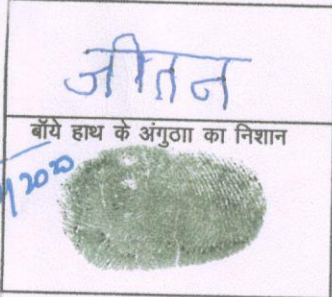 जीतन
बॉये हाथ के अंगुठाा का निशान
2020